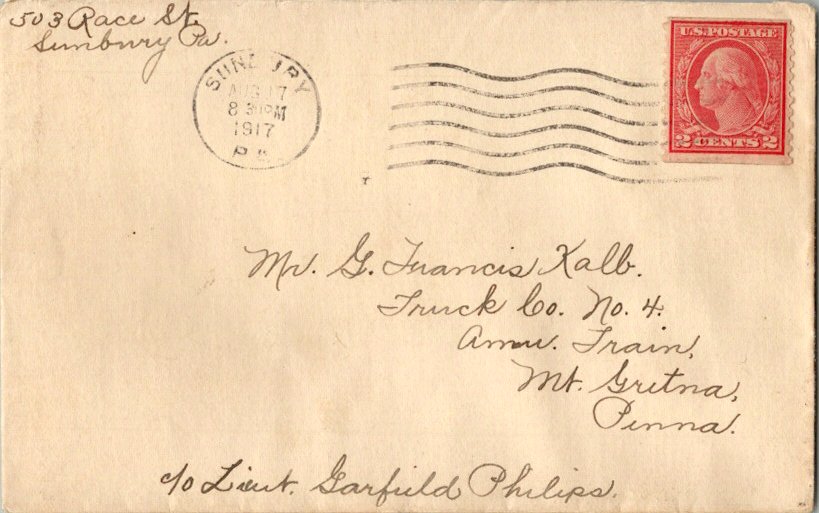 503 Race St.
Sunbury Pa.
SUNBURY
AUG 17
8 30 PM
1917
PA.
U.S. POSTAGE
2 CENTS 2
Mr. G. Francis Kalb.
Truck Co. No. 4.
Amu. Train,
Mt. Gretna,
Penna.
c/o Lieut. Garfield Philips.